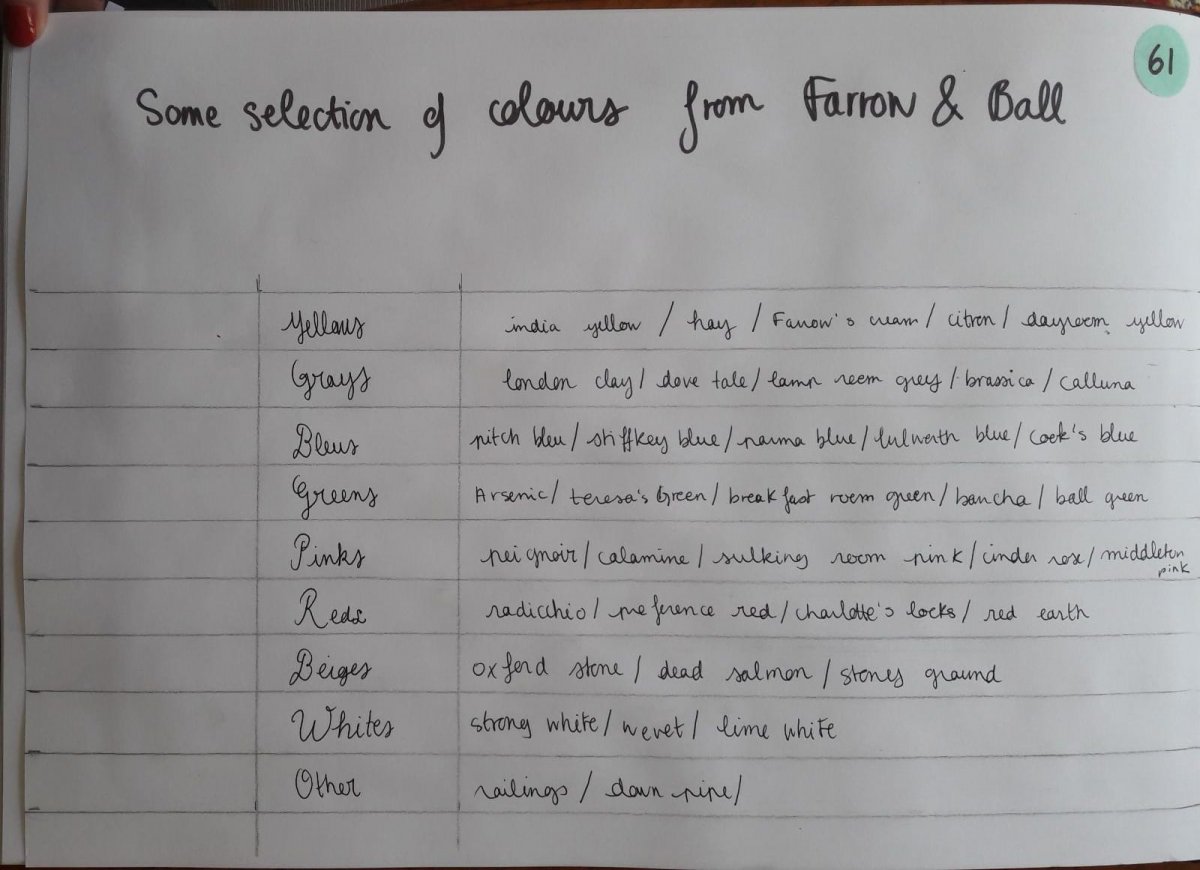 61
Some selection of colours from Farrow & Ball
Yellows india yellow / hay / Farrow's cream / citron / dayroom yellow
Grays london clay / dove tale / lamp room grey / brassica / calluna
Bleus pitch bleu / stiffkey blue / parma blue / lulworth blue / cook's blue
Greens Arsenic / teresa's Green / breakfast room green / bancha / ball green
Pinks peignoir / calamine / sulking room pink / cinder rose / middleton
pink
Reds radicchio / preference red / charlotte's locks / red earth
Beiges oxford stone / dead salmon / stones ground
Whites strong white / wevet / lime white
Other railings / down pipe /